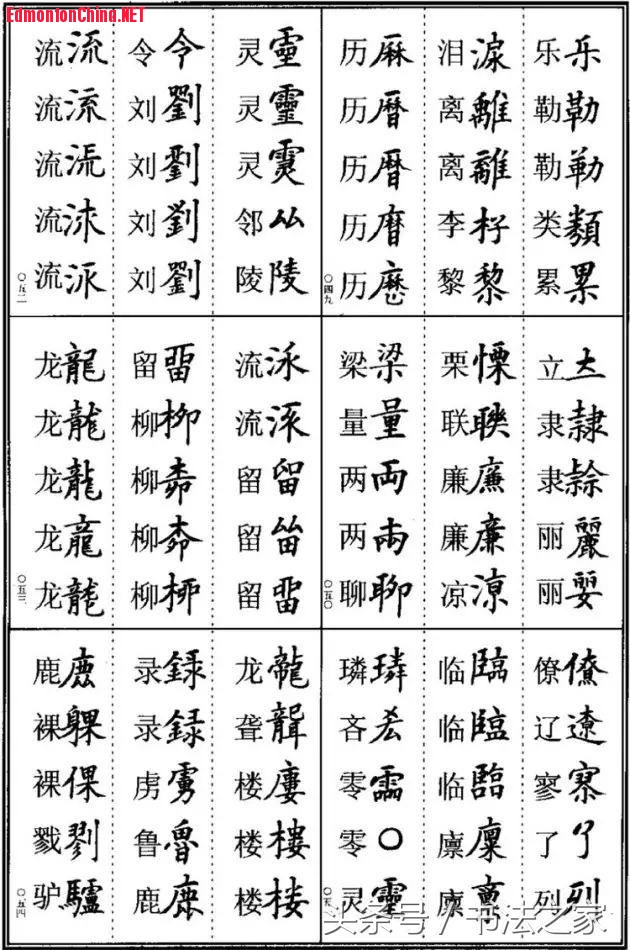 EdmontonChina.NET
乐 乐
勒 勒
勒 勒
类 類
累 累
泪 淚
离 離
离 離
李 杍
黎 黎
历 厤
历 曆
历 曆
历
历
〇四九
立
隶 隸
隶
丽 麗
丽
栗 慄
联
廉 廉
廉 廉
凉 凉
梁 梁
量 量
两 両
两 两
聊 聊
〇五〇
僚 僚
辽 遼
寥 寮
了 了
列 列
临 臨
临 臨
临 臨
廪 廩
廪
璘 璘
吝
零 霝
零 〇
灵 靈
〇五
灵 靈
灵 靈
灵
邻 厸
陵 陵
令 令
刘 劉
刘 劉
刘 劉
刘 劉
流 流
流 流
流
流
流
〇五二
流
流
留 留
留
留 畱
留 畱
柳 柳
柳
柳
柳 桺
龙 龍
龙 龍
龙 龍
龙 龍
龙 龍
〇五三
龙 龍
聋 聾
楼 廔
楼 楼
楼 楼
录 録
录 録
虏
鲁 魯
鹿 鹿
鹿 鹿
裸 躶
裸 倮
戮 剹
驴 驢
〇五四
头条号／书法之家